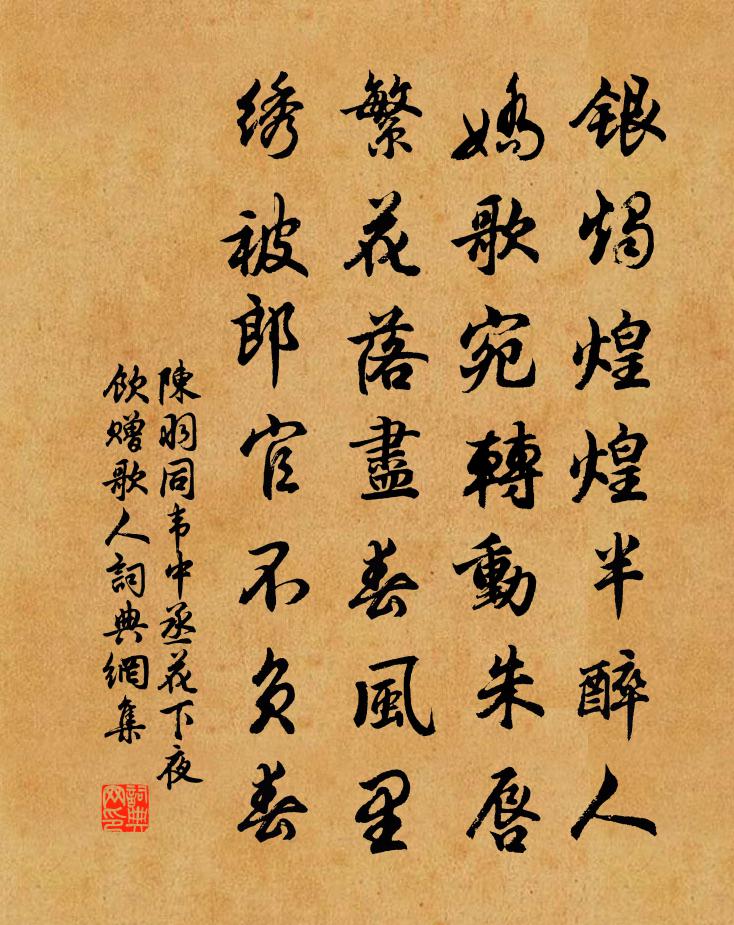 银烛煌煌半醉人
娇歌宛轉動朱唇
繁花落盡春風里
绣被郎官不负春
陳羽同韦中丞花下夜
饮赠歌人詞典網集
詞典网印